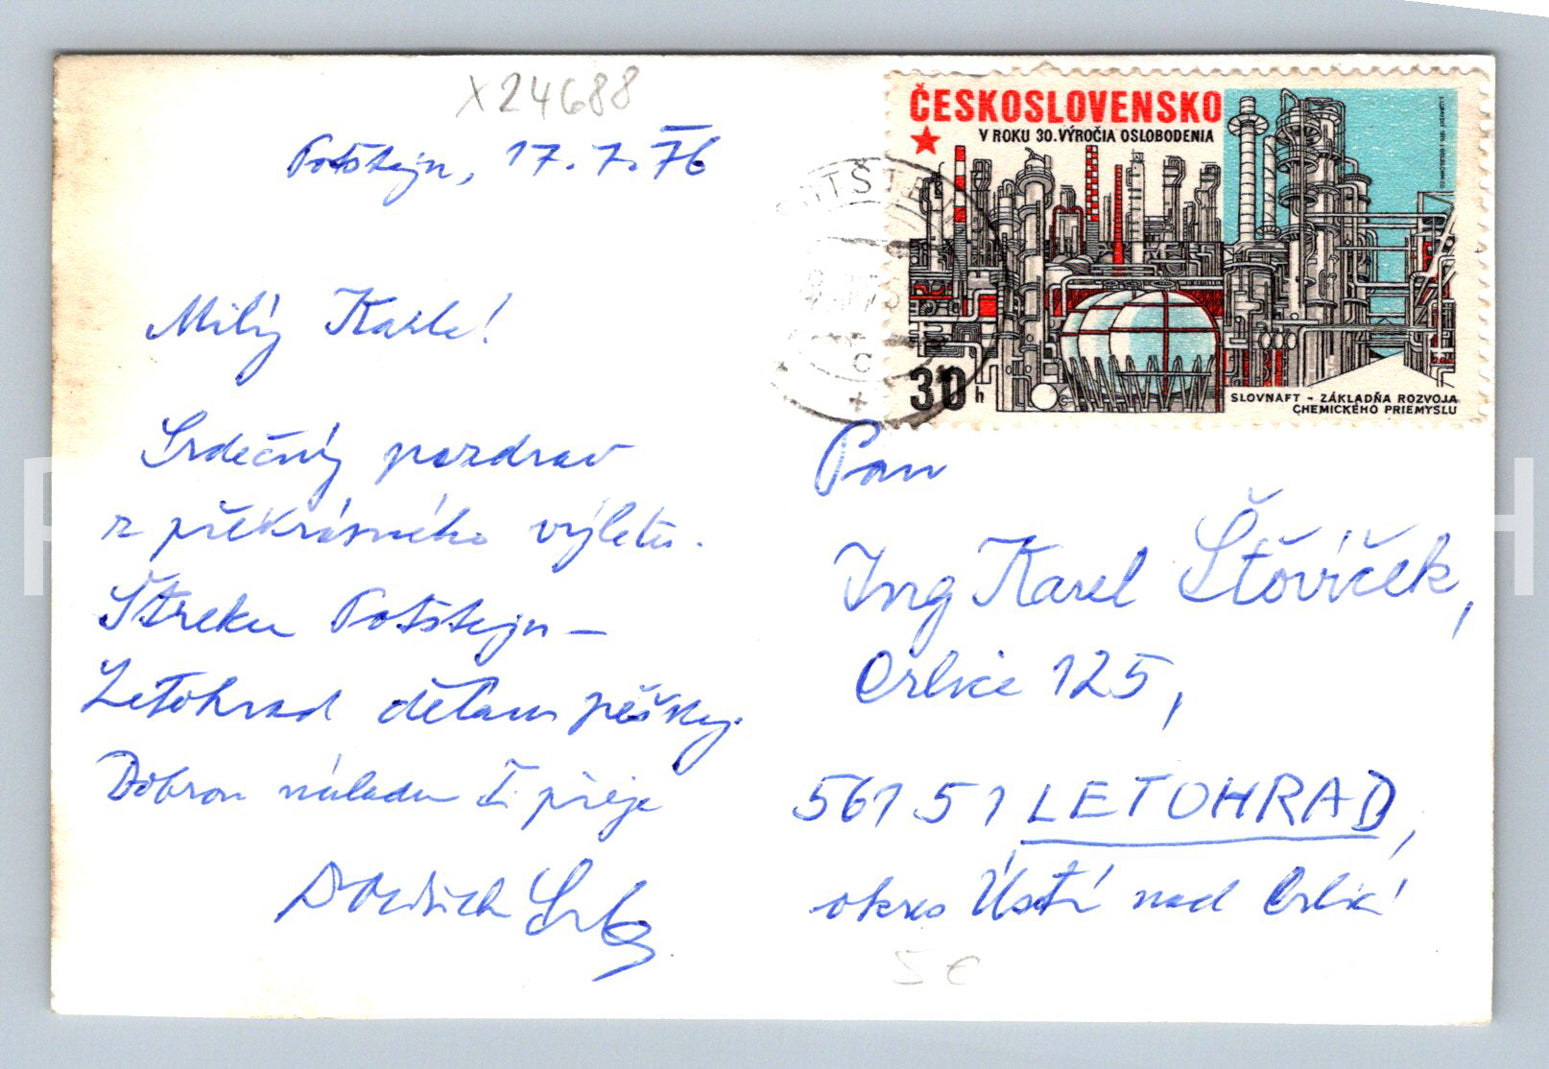 X24688
Potštejn, 17.7.76
Milý Karle!
Srdečný pozdrav
z překrásného výletu.
Štreku Potštejn –
Letohrad dělám pěšky.
Dobrou náladu Ti přeje
Oldřich
ČESKOSLOVENSKO
V ROKU 30. VÝROČIA OSLOBODENIA
30 h
SLOVNAFT - ZÁKLADŇA ROZVOJA
CHEMICKÉHO PRIEMYSLU
Pan
Ing Karel Šťovíček,
Orlice 125,
561 51 LETOHRAD,
okres Ústí nad Orlicí
5 €